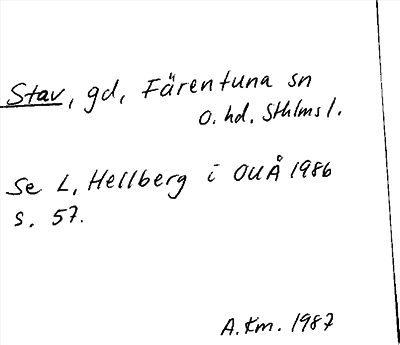 Stav, gd, Färentuna sn
o. hd. Sthlms l.
Se L. Hellberg i OUÅ 1986
s. 57.
A. Km. 1987